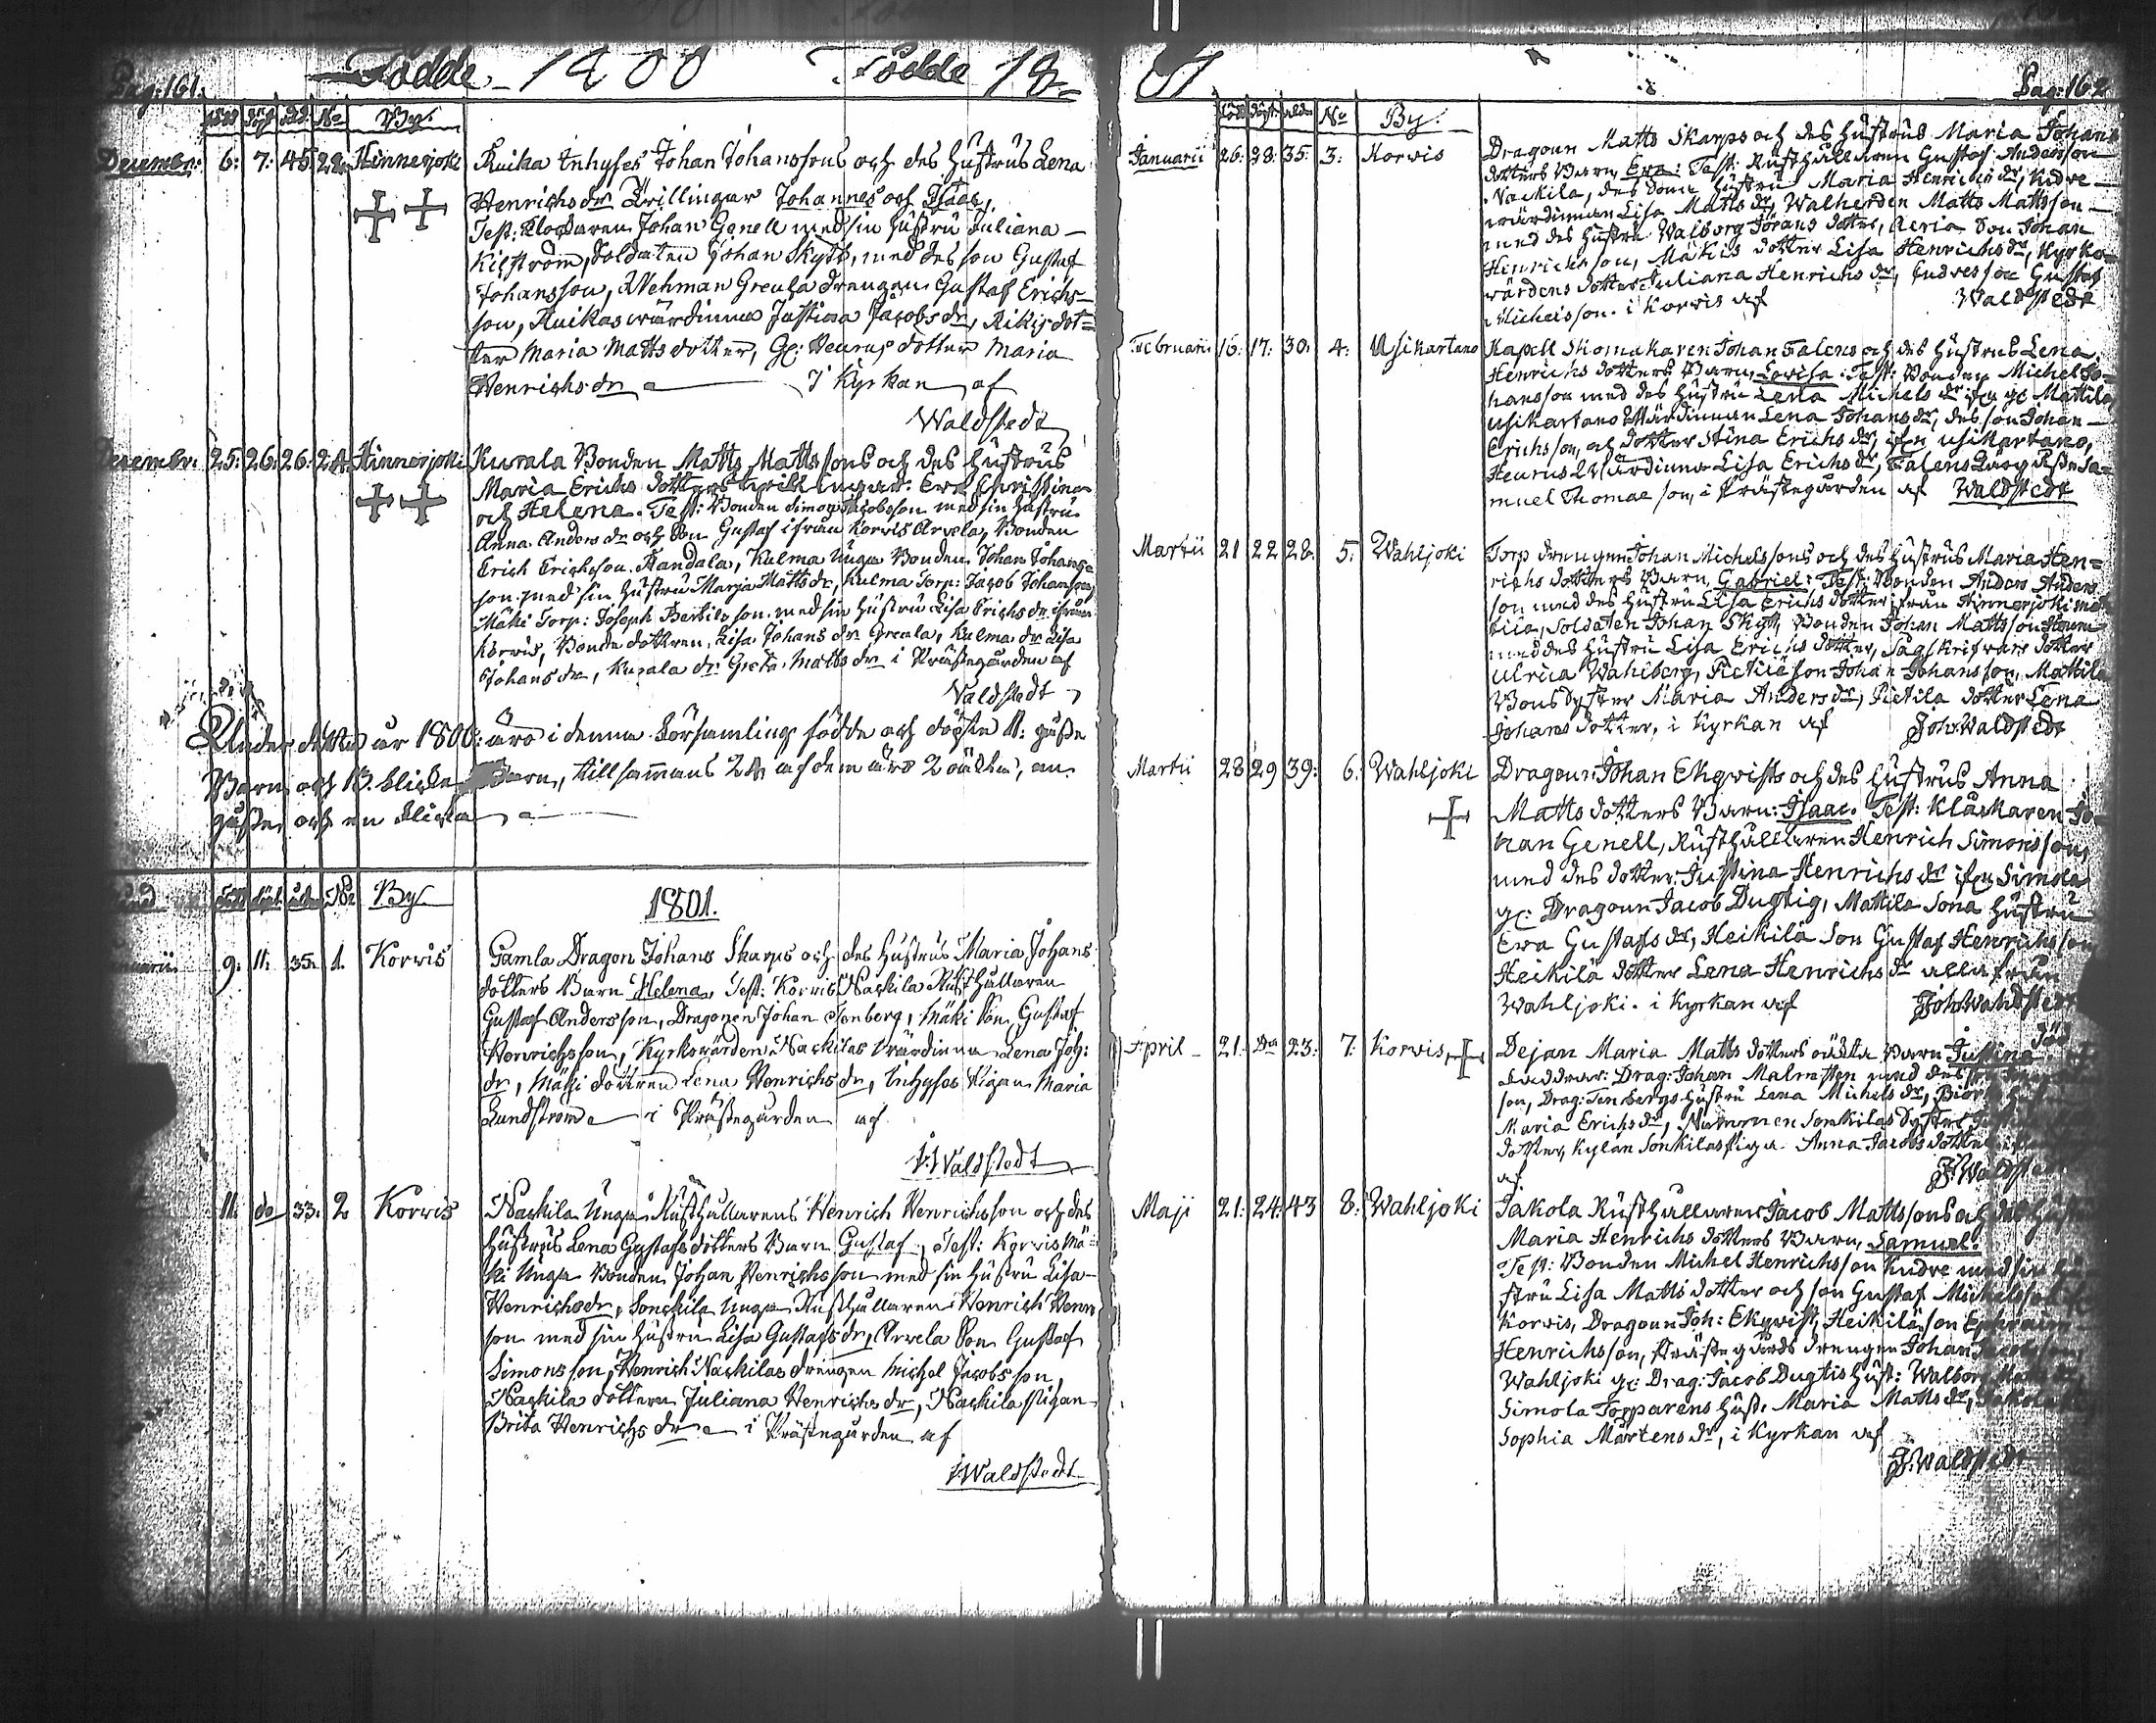 Pag: 161.
Födde 1800 Födde 18
född döpt ald. No By.
Decembr: 6: 7: 45 22. Hinnerjoki Ruika Inhyses Johan Johanssons och des hustrus Lena
Henrichs dr Tvillingar Johannes och Isaac,
Test: Klockaren Johan Genell med sin hustru Juliana
Kilström, Soldaten Johan Skytt, med des son Gustaf
Johansson, Greula drengen Gustaf Erichs-
son, Ruikas wärdinna Justina Jacobs dr, Rikis dot=
ter Maria Matts dotter, Heurus dotter Maria
Henrichs dr i Kyrkan af
Waldstedt
Decembr: 25: 26: 26: 24. Hinnerjoki Kurala Bonden Matts Matts sons och des hustrus
Maria Erichs dotters twillingar: Eva Christina
och Helena. Test: Bonden Simon Jacobsson med sin hustru
Anna Anders dr och Son Gustaf ifrån Korvis Arvela, Bonden
Erich Erichsson Handala, Kulma Unga Bonden Johan Johans=
son med sin hustru Maria Matts dr, Kulma Torp: Jacob Johansson,
Mäki Torp: Joseph Bertils son med sin hustru Lisa Erichs dr ifrån
Korvis, Bonde dottren Lisa Johans dr Greula, Kulma dr Lisa
Johans dr, Kurala dr Greta Matts dr i Prästegården af
Waldstedt
Under detta år 1800: äro i denna Församling födde och döpte 11: gosse
Barn och 13. flicke Barn, tillsammans 24 af dem äro 2 oäkta, en
gosse och en flicka
född döpt ålder No By
1801.
9. 11: 35. 1. Korvis Gamla Dragon Johans Skarps och des hustrus Maria Johans
dotters Barn Helena, Test: Korvis Nackila Rusthållaren
Gustaf Andersson, Dragonen Johan Tenberg, Mäki Son Gustaf
Henrichsson, Kyrkowärden Nackilas wärdinna Lena Joh:
dr, Mäki dottren Lena Henrichs dr, Inhyses Pigan Maria
Lundström i Prästegården af
J:Waldstedt
11. do 33. 2 Korvis Nackila Unga Rusthållarens Henrich Henrichsson och des
hustrus Lena Gustafs dotters Barn Gustaf, Test: Korvis Mä=
ki Unga Bonden Johan Henrichsson med sin hustru Lisa
Henrichs dr, Sonckila Unga Rusthållaren Henrich Henr
son med sin hustru Lisa Gustafs dr, Arvela Son Gustaf
Simonsson, Henrich Nackilas drengen Michel Jacobsson,
Nackila dottern Juliana Henrichs dr, Nackila Pigan
Brita Henrichs dr i Prästegården af
J:Waldstedt
01 Pag: 162
född döpt alder No By.
Januarii 26: 28: 35: 3: Korvis Dragoun Matts Skarps och des hustrus Maria Johans
dotters Barn Eva: Test: Rusthållaren Gustaf Andersson
Nackila, des Sons hustru Maria Henrichs dr, Kudre
wärdinnan Lisa Matts dr, Walherden Matts Mattsson
med des hustru Walborg Jörans dotter, Son Johan
Hinrichsson, Mäkis dotter Lisa Henrichs dr, Kyrko=
wärdens dotter Juliana Henrichs dr, Kudres son Gustaf
Michelsson. i Korvis af Waldstedt
Februarii 16: 17: 30: 4: Usikartano Kapell Skomakaren Johan Falens och des hustrus Lena
Henrichs dotters Barn, Lovisa: Test: Bonden Michel Jo=
hansson med des hustru Lena Michels dr ifrån Mattila
Usikartano Wärdinnan Lena Johans dr, des son Johan
Erichsson, och dotter Stina Erichs dr, ifrån Usikartano,
Heurus Wärdinna Lisa Erichs dr, Falens Sa=
muel Thomae son, i Prästegården af Waldstedt
Martii 21 22 28. 5: Wahljoki Torp drengen Johan Michelssons och des hustrus Maria Hen=
richs dotters Barn Gabriel: Test: Bonden Anders Anders
son med des hustru Lisa Erichs dotter från Hinnerjoki
Soldaten Johan Skytt, Bonden Johan Mattsson
med des hustru Lisa Erichs dotter, dotter
Ulrica Wahlberg, son Johan Johansson, Mattila
Maria Anders dr, Pietila dotter Lena
Johans dotter, i Kyrkan af Joh:Waldstedt
Martii 28 29 39: 6: Wahljoki Dragoun Johan Ekqvists och des hustrus Anna
Matts dotters Barn: Isaac. Test: Klåckaren Jo=
han Genell, Rusthållaren Henrich Simonsson
med des dotter Justina Henrichs dr ifrån Simola
Dragoun Jacob Dugtig, Mattila Sona hustru
Eva Gustafs dr, Heikilä Son Gustaf Henrichsson
Heikilä dotter Lena Henrichs dr alla från
Wahljoki. i Kyrkan af Joh:Waldstedt
April 21: Do 23: 7: Korvis Dejan Maria Matts dotters oäckta Barn Justina
Faddrar: Drag: Johan Malmsten med des
son, Drag: Tenbergs hustru Lena Michels dr,
Maria Erichs dr, Sonkilas
dotter, Kylän Sonkilas Piga Anna Jacobs dotter
af J:Waldstedt
Maji 21: 24: 43 8: Wahljoki Jakola Rusthållaren Jacob Mattssons och des hustrus
Maria Henrichs dotters Barn, Samuel.
Test: Bonden Michel Henrichsson Kudre med sin hu
stru Lisa Matts dotter och son Gustaf Michelsson
Korvis, Dragoun Joh: Ekqvist, Heikilä son Ephraim
Henrichsson, Prästegårds drengen Johan
Wahljoki Drag: Jacob Dugtis hust: Walborg
Simola Topparens hust. Maria Matts dr,
Sophia Mårtens dr, i Kyrkan af
J:Waldstedt